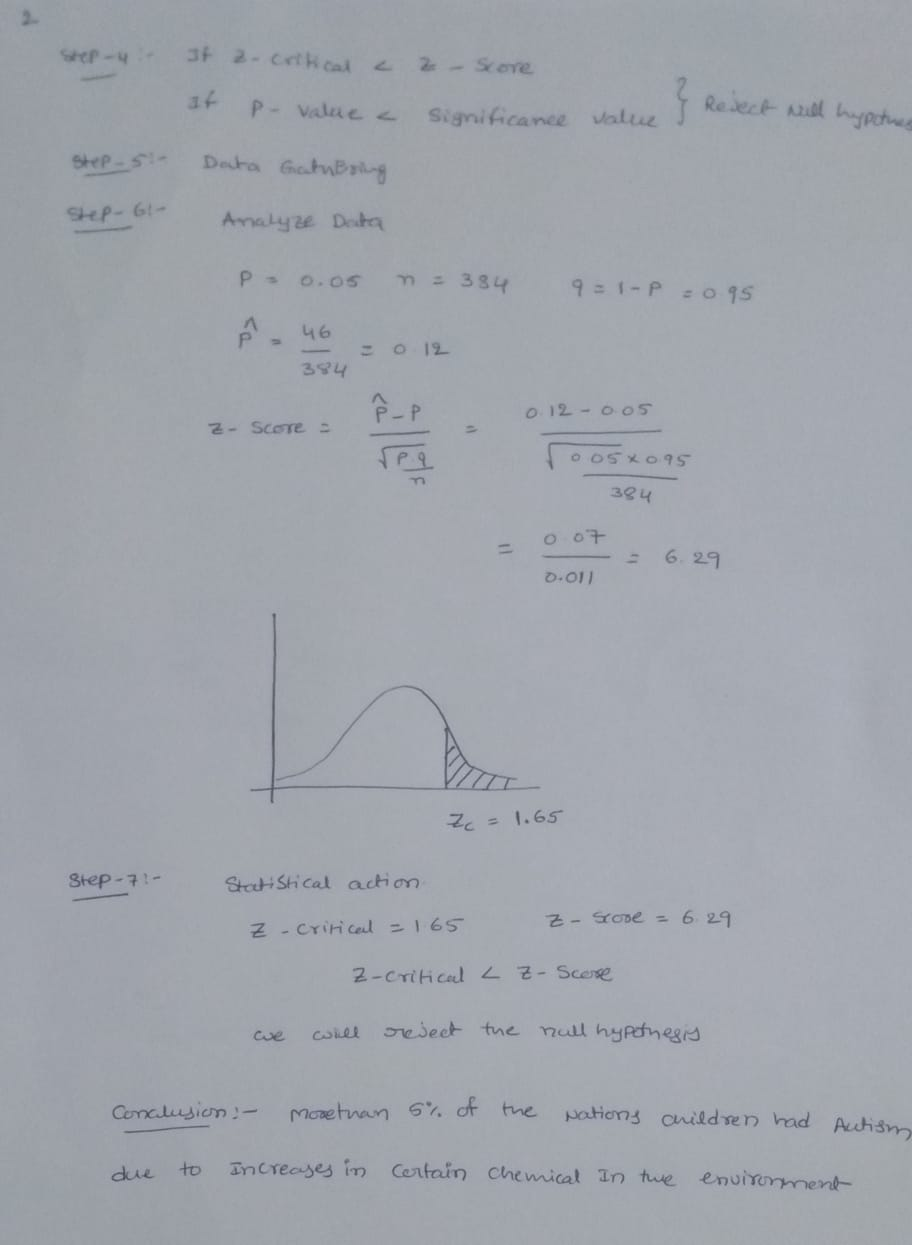 2
Step-4:- If Z-critical < Z-Score
If P-value < Significance value } Reject Null hypothes
Step-5:- Data GathBring
Step-6:- Analyze Data
P = 0.05 n = 384 q = 1-P = 0.95
p̂ = 46/384 = 0.12
Z-Score = (p̂-P)/(√(P.q/n)) = (0.12-0.05)/(√(0.05×0.95/384))
= 0.07/0.011 = 6.29
Zc = 1.65
Step-7:- Statistical action.
Z-critical = 1.65 Z-Score = 6.29
Z-critical < Z-Score
we will reject the null hypothesis
Conclusion:- Morethan 5% of the Nations children had Autism
due to Increases in Certain Chemical In the environment